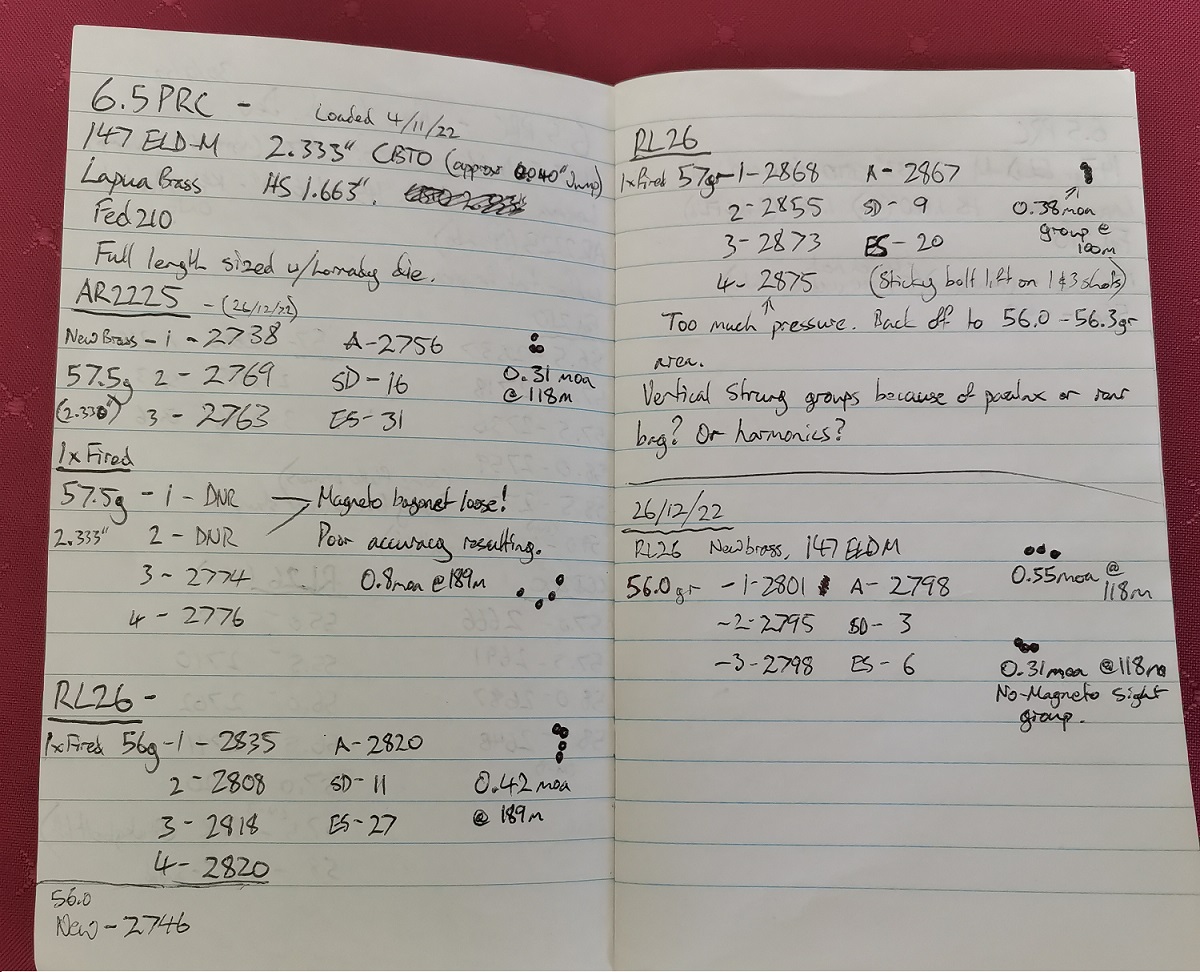 6.5 PRC - Loaded 4/11/22
147 ELD-M 2.333" CBTO (approx 0.040" Jump)
Lapua Brass HS 1.663".
Fed 210
Full length sized w/ Hornady die.
AR2225 - (26/12/22)
New Brass - 1 - 2738 A-2756
57.5g 2 - 2769 SD-16 0.31 moa
@ 118m
(2.330") 3 - 2763 ES-31
1x Fired
57.5g - 1 - DNR Magneto bayonet loose!
2.333" 2 - DNR Poor accuracy resulting.
3 - 2774 0.8moa @ 189m
4 - 2776
RL26 -
1x Fired 56g - 1 - 2835 A-2820
2 - 2808 SD-11 0.42 moa
3 - 2818 ES-27 @ 189m
4 - 2820
56.0
New - 2746
RL26
1x Fired 57gr - 1 - 2868 A-2867
2 - 2855 SD-9 0.38moa
group @
100m
3 - 2873 ES-20
4 - 2875 (Sticky bolt lift on 1 & 3 shots)
Too much pressure. Back off to 56.0 - 56.3gr
area.
Vertical Strung groups because of paralax or rear
bag? Or harmonics?
26/12/22
RL26 New brass, 147 ELDM
56.0gr - 1 - 2801 A-2798 0.55moa @
118m
- 2 - 2795 SD-3
- 3 - 2798 ES-6 0.31moa @ 118m
No-Magneto Sight
group.